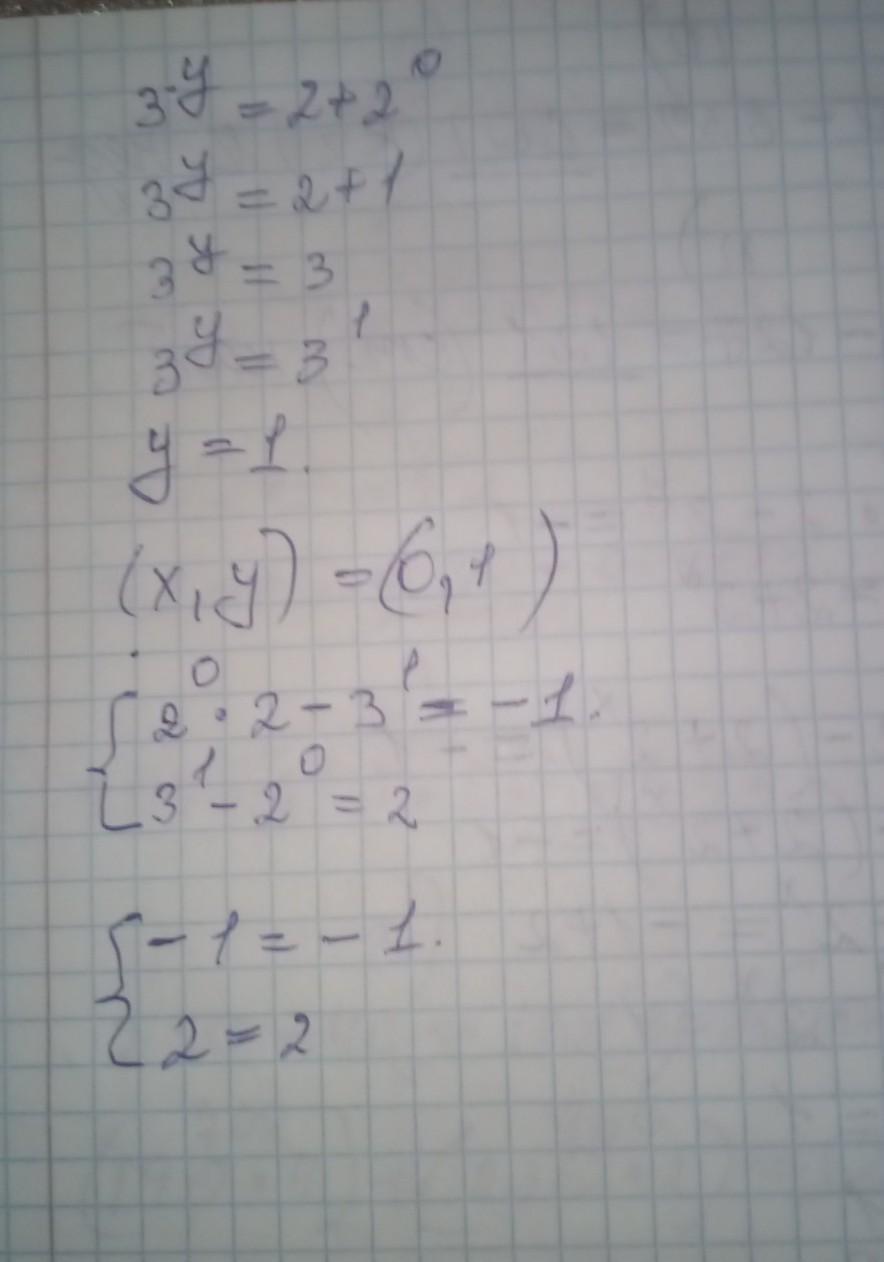 3^y = 2+2^0
3^y = 2+1
3^y = 3
3^y = 3^1
y = 1.
(x,y) = (0,1)
{ 2^0 · 2 - 3^1 = -1.
3^1 - 2^0 = 2
{ -1 = -1.
2 = 2